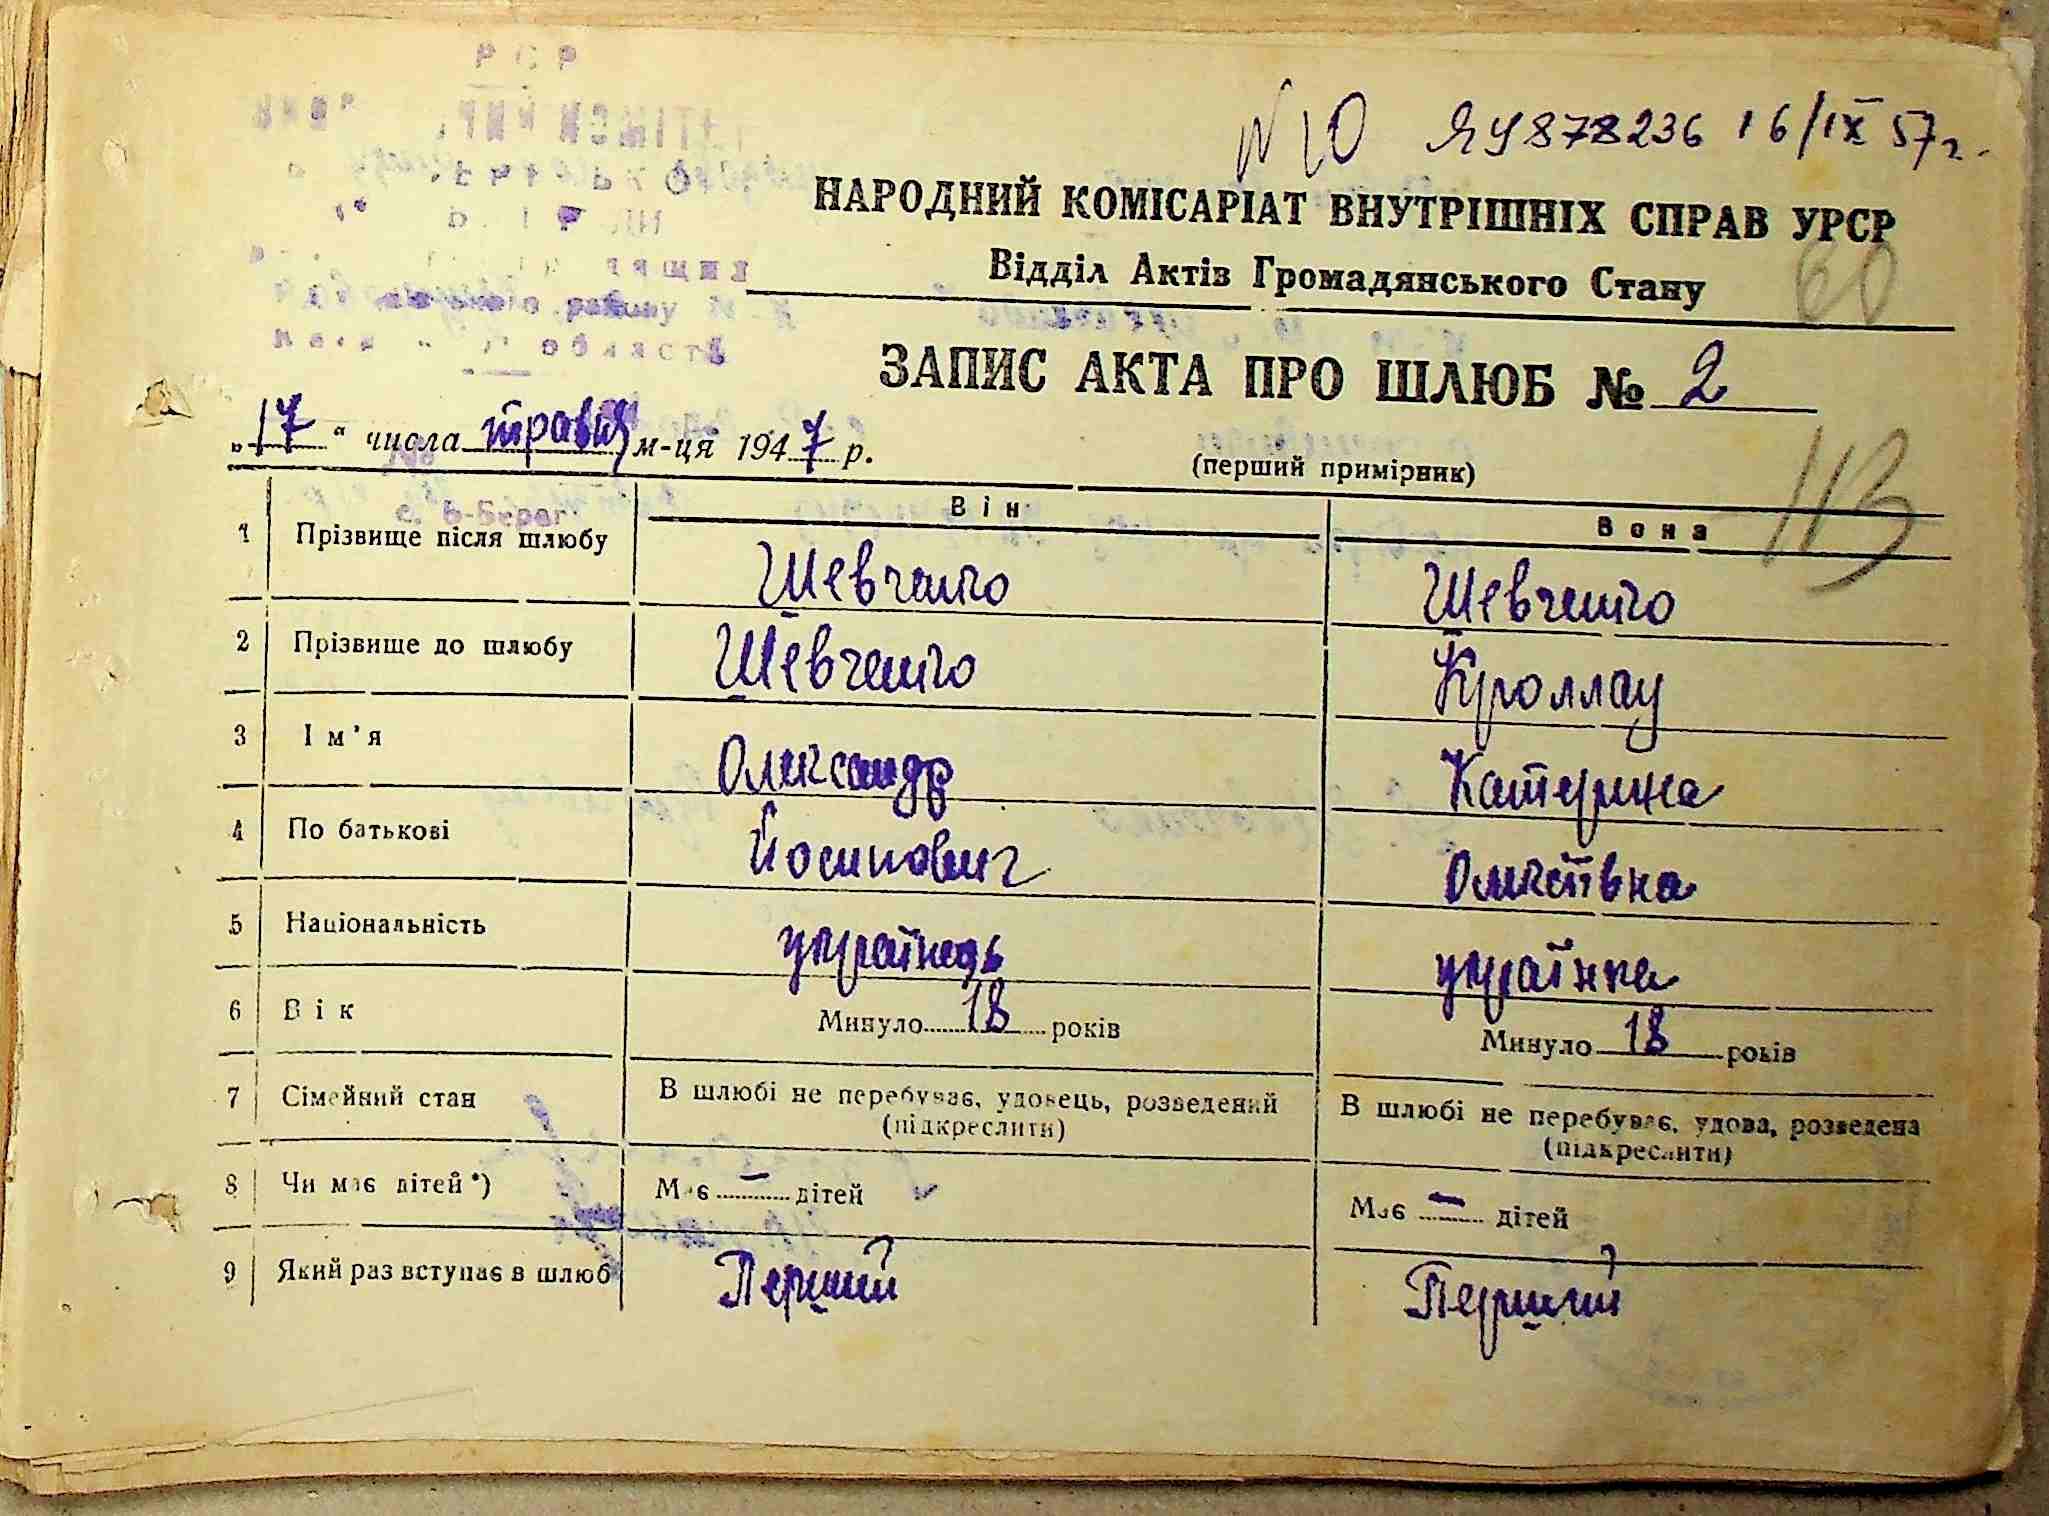 РСР
N 10 ЯУ 878236 16/IX 57 г.
НАРОДНИЙ КОМІСАРІАТ ВНУТРІШНІХ СПРАВ УРСР
Відділ Актів Громадянського Стану
60
району
області
ЗАПИС АКТА ПРО ШЛЮБ № 2
„17“ числа травня м-ця 1947 р.
(перший примірник)
113
с. Б-Берег
Він Вона
1 Прізвище після шлюбу Шевченко Шевченко
2 Прізвище до шлюбу Шевченко Кроллау
3 Ім'я Олександр Катерина
4 По батькові Йосипович Олексіївна
5 Національність українець українка
6 Вік Минуло 18 років Минуло 18 років
7 Сімейний стан В шлюбі не перебуває, удовець, розведений (підкреслити) В шлюбі не перебуває, удова, розведена (підкреслити)
8 Чи має дітей*) Має — дітей Має — дітей
9 Який раз вступає в шлюб Перший Перший